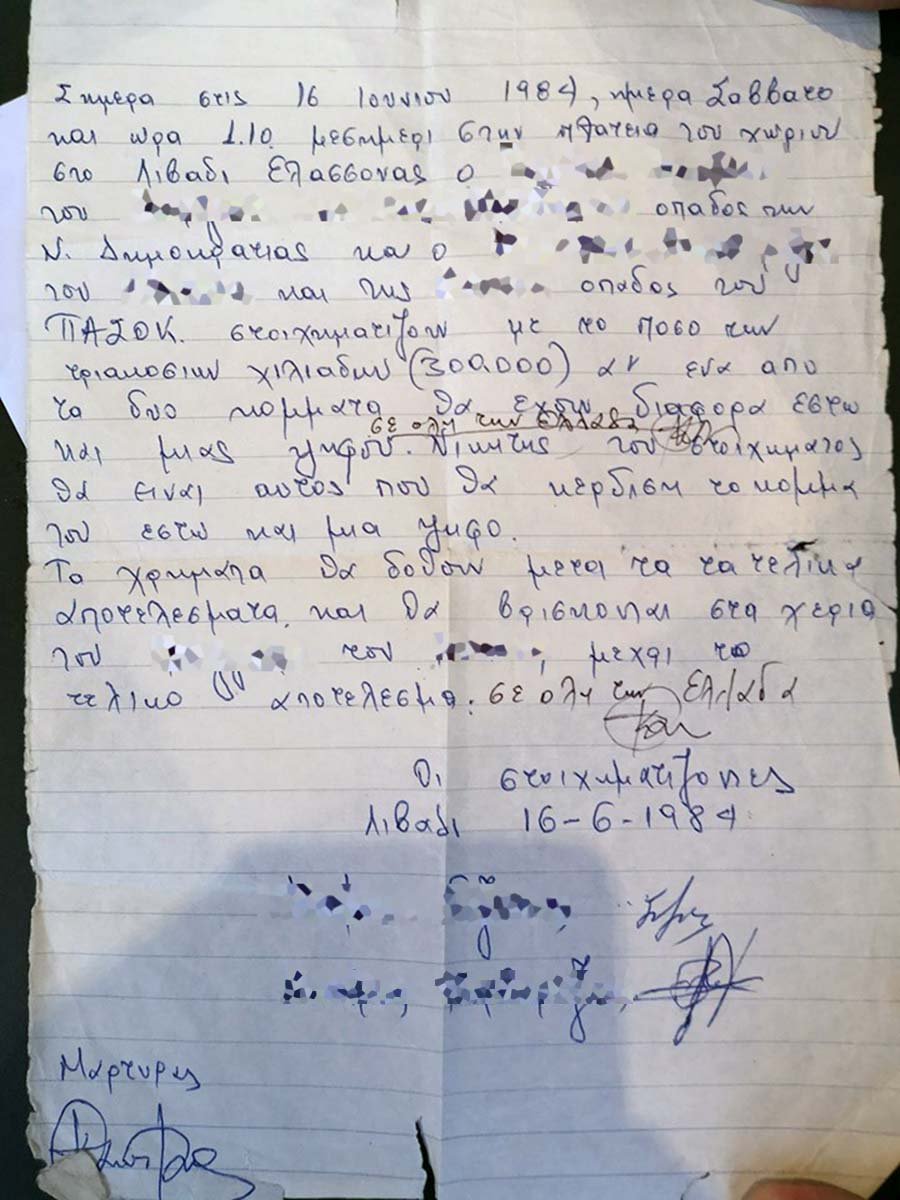 Σημερα στις 16 Ιουνιου 1984, ημερα Σαββατο
και ωρα 1.10 μεσημερι στην πλατεια του χωριου
στο Λιβαδι Ελασσονας ο
του οπαδος της
Ν. Δημοκρατιας και ο
του και της οπαδος του
ΠΑΣΟΚ. στοιχηματιζουν με το ποσο των
τριακοσιων χιλιαδων (300.000) αν ενα απο
τα δυο κομματα θα εχουν διαφορα εστω
σε ολη την Ελλαδα
και μιας ψηφου. Νικητης του στοιχηματος
θα ειναι αυτος που θα κερδιση το κομμα
του εστω και μια ψηφο.
Τα χρηματα θα δοθουν μετα τα τα τελικα
αποτελεσματα. και θα βρισκονται στα χερια
του του , μεχρι το
τελικο αποτελεσμα. σε ολη την Ελλαδα
Οι στοιχηματιζοντες
Λιβαδι 16-6-1984
Μαρτυρες